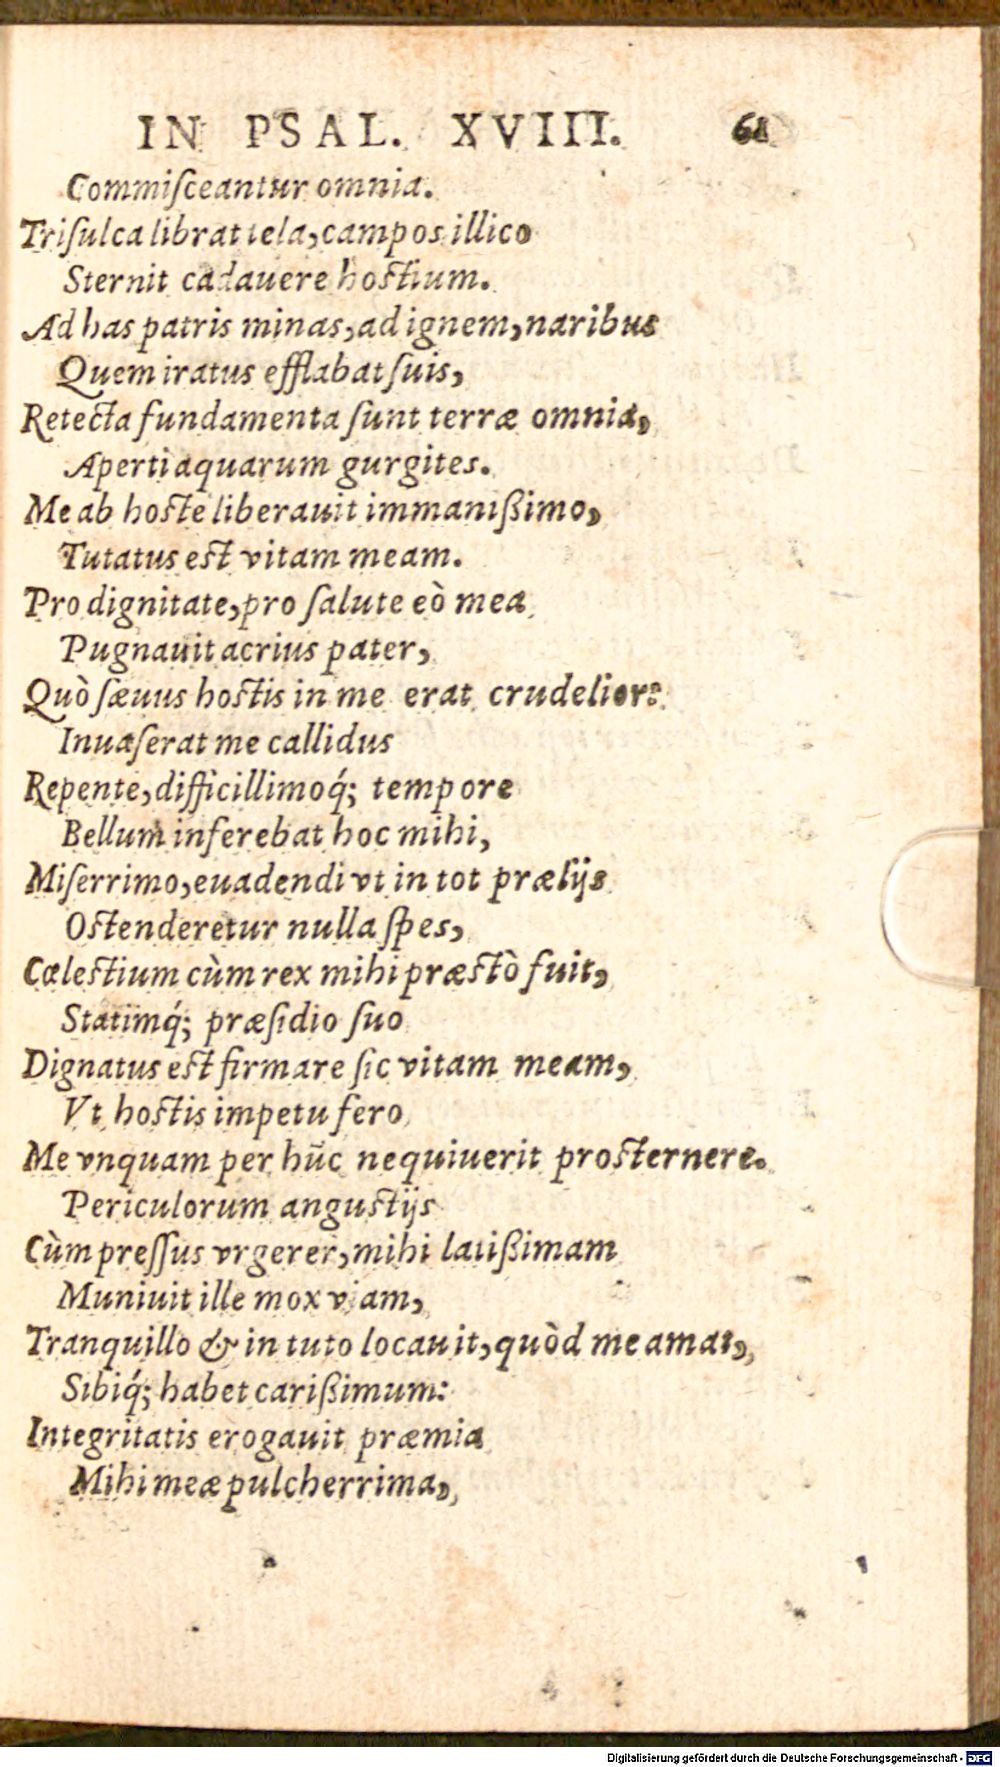 IN PSAL. XVIII. 61
Commiſceantur omnia.
Triſulca librat tela, campos illico
Sternit cadauere hoſtium.
Ad has patris minas, ad ignem, naribus
Quem iratus efflabat ſuis,
Retecta fundamenta ſunt terræ omnia,
Aperti aquarum gurgites.
Me ab hoſte liberauit immanißimo,
Tutatus eſt vitam meam.
Pro dignitate, pro ſalute eò mea
Pugnauit acrius pater,
Quò ſæuus hoſtis in me erat crudelior:
Inuaſerat me callidus
Repente, difficillimoq́; tempore
Bellum inferebat hoc mihi,
Miſerrimo, euadendi vt in tot prælijs
Oſtenderetur nulla ſpes,
Cœleſtium cùm rex mihi præſtò fuit,
Statimq́; præſidio ſuo
Dignatus eſt firmare ſic vitam meam,
Vt hoſtis impetu fero
Me vnquam per hũc nequiuerit proſternere.
Periculorum anguſtijs
Cùm preſſus vrgerer, mihi latißimam
Muniuit ille mox viam,
Tranquillo & in tuto locauit, quòd me amat,
Sibiq́; habet carißimum:
Integritatis erogauit præmia
Mihi meæ pulcherrima,
Digitalisierung gefördert durch die Deutsche Forschungsgemeinschaft - DFG